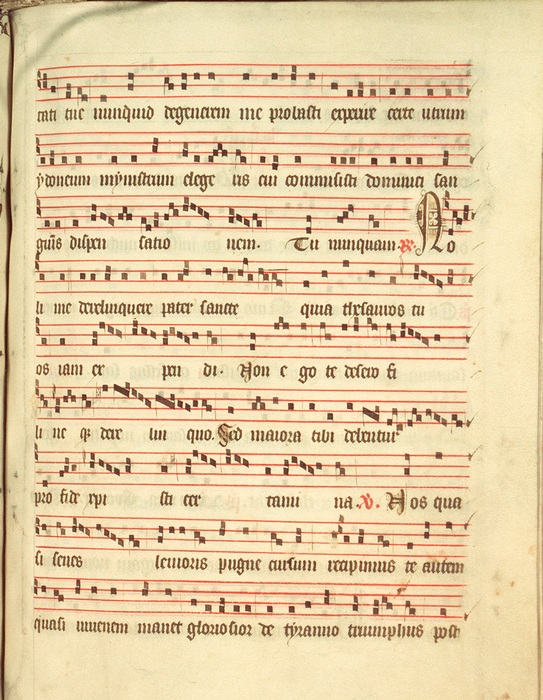 tati tue nunquid degenerem me probasti experire certe utrum
ydoneum mynistrum elege ris cui commisisti dominici san
guīs dispen satio nem. Tu nunquam ℟. No
li me derelinquere pater sancte quia thesauros tu
os iam ex pen di. Non e go te desero fi
li ne qȝ dere lin quo. Sed maiora tibi debentur
pro fide xpi sti cer tami na. ℣. Nos qua
si senes leuioris pugne cursum recipimus te autem
quasi iuuenem manet gloriosior de tyranno triumphus post